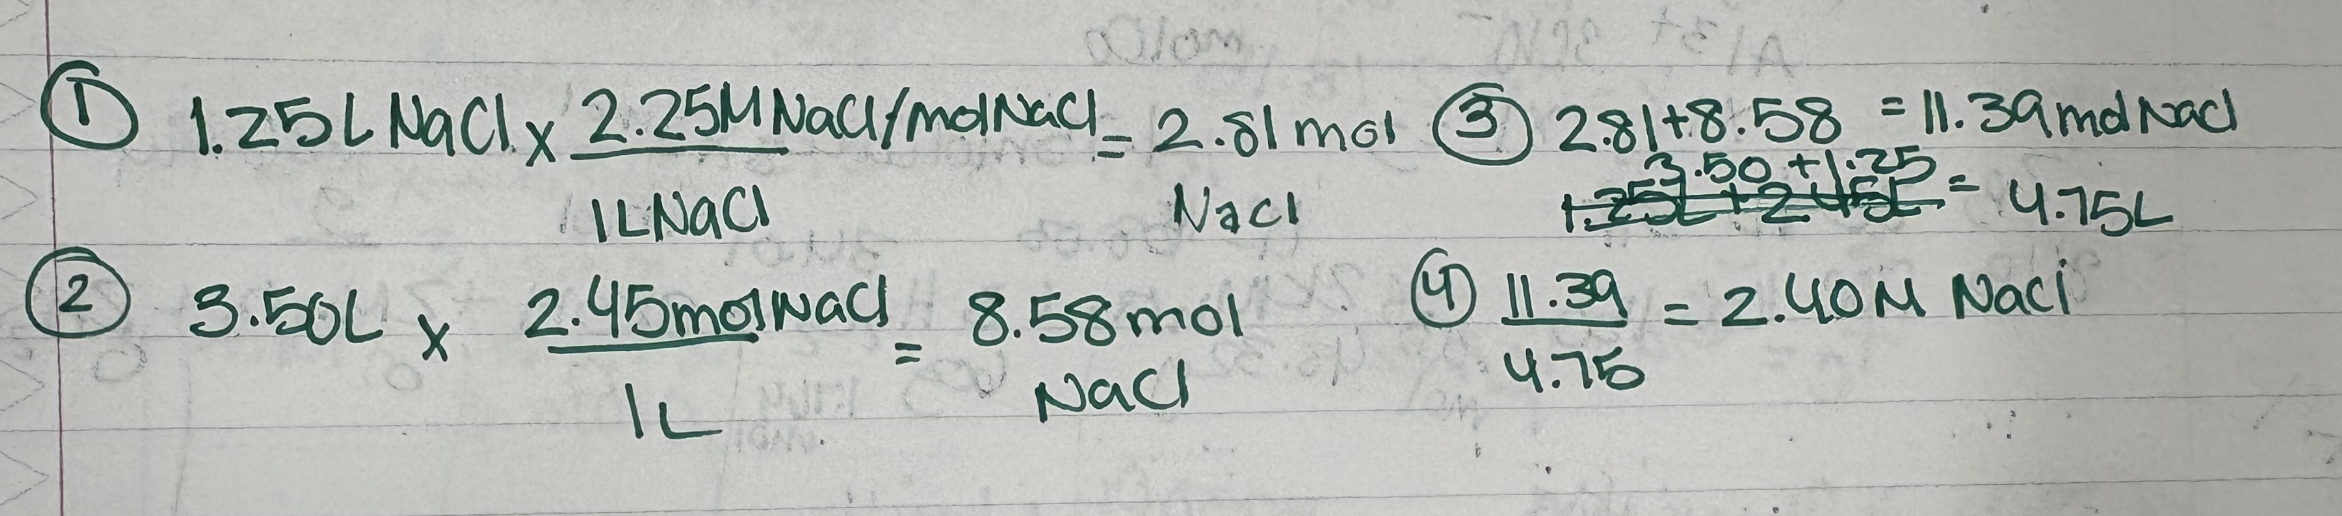 ① 1.25L NaCl x 2.25M NaCl/mol NaCl = 2.81 mol
1L NaCl NaCl
② 3.50L x 2.45mol NaCl = 8.58 mol
1L NaCl
③ 2.81+8.58 = 11.39 mol NaCl
3.50+1.25
1.25L+2.45L = 4.75L
④ 11.39 = 2.40M NaCl
4.75